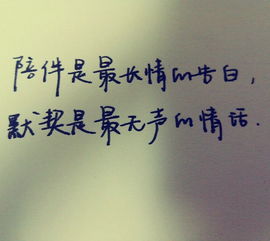 陪伴是最长情的告白，
默契是最无声的情话.